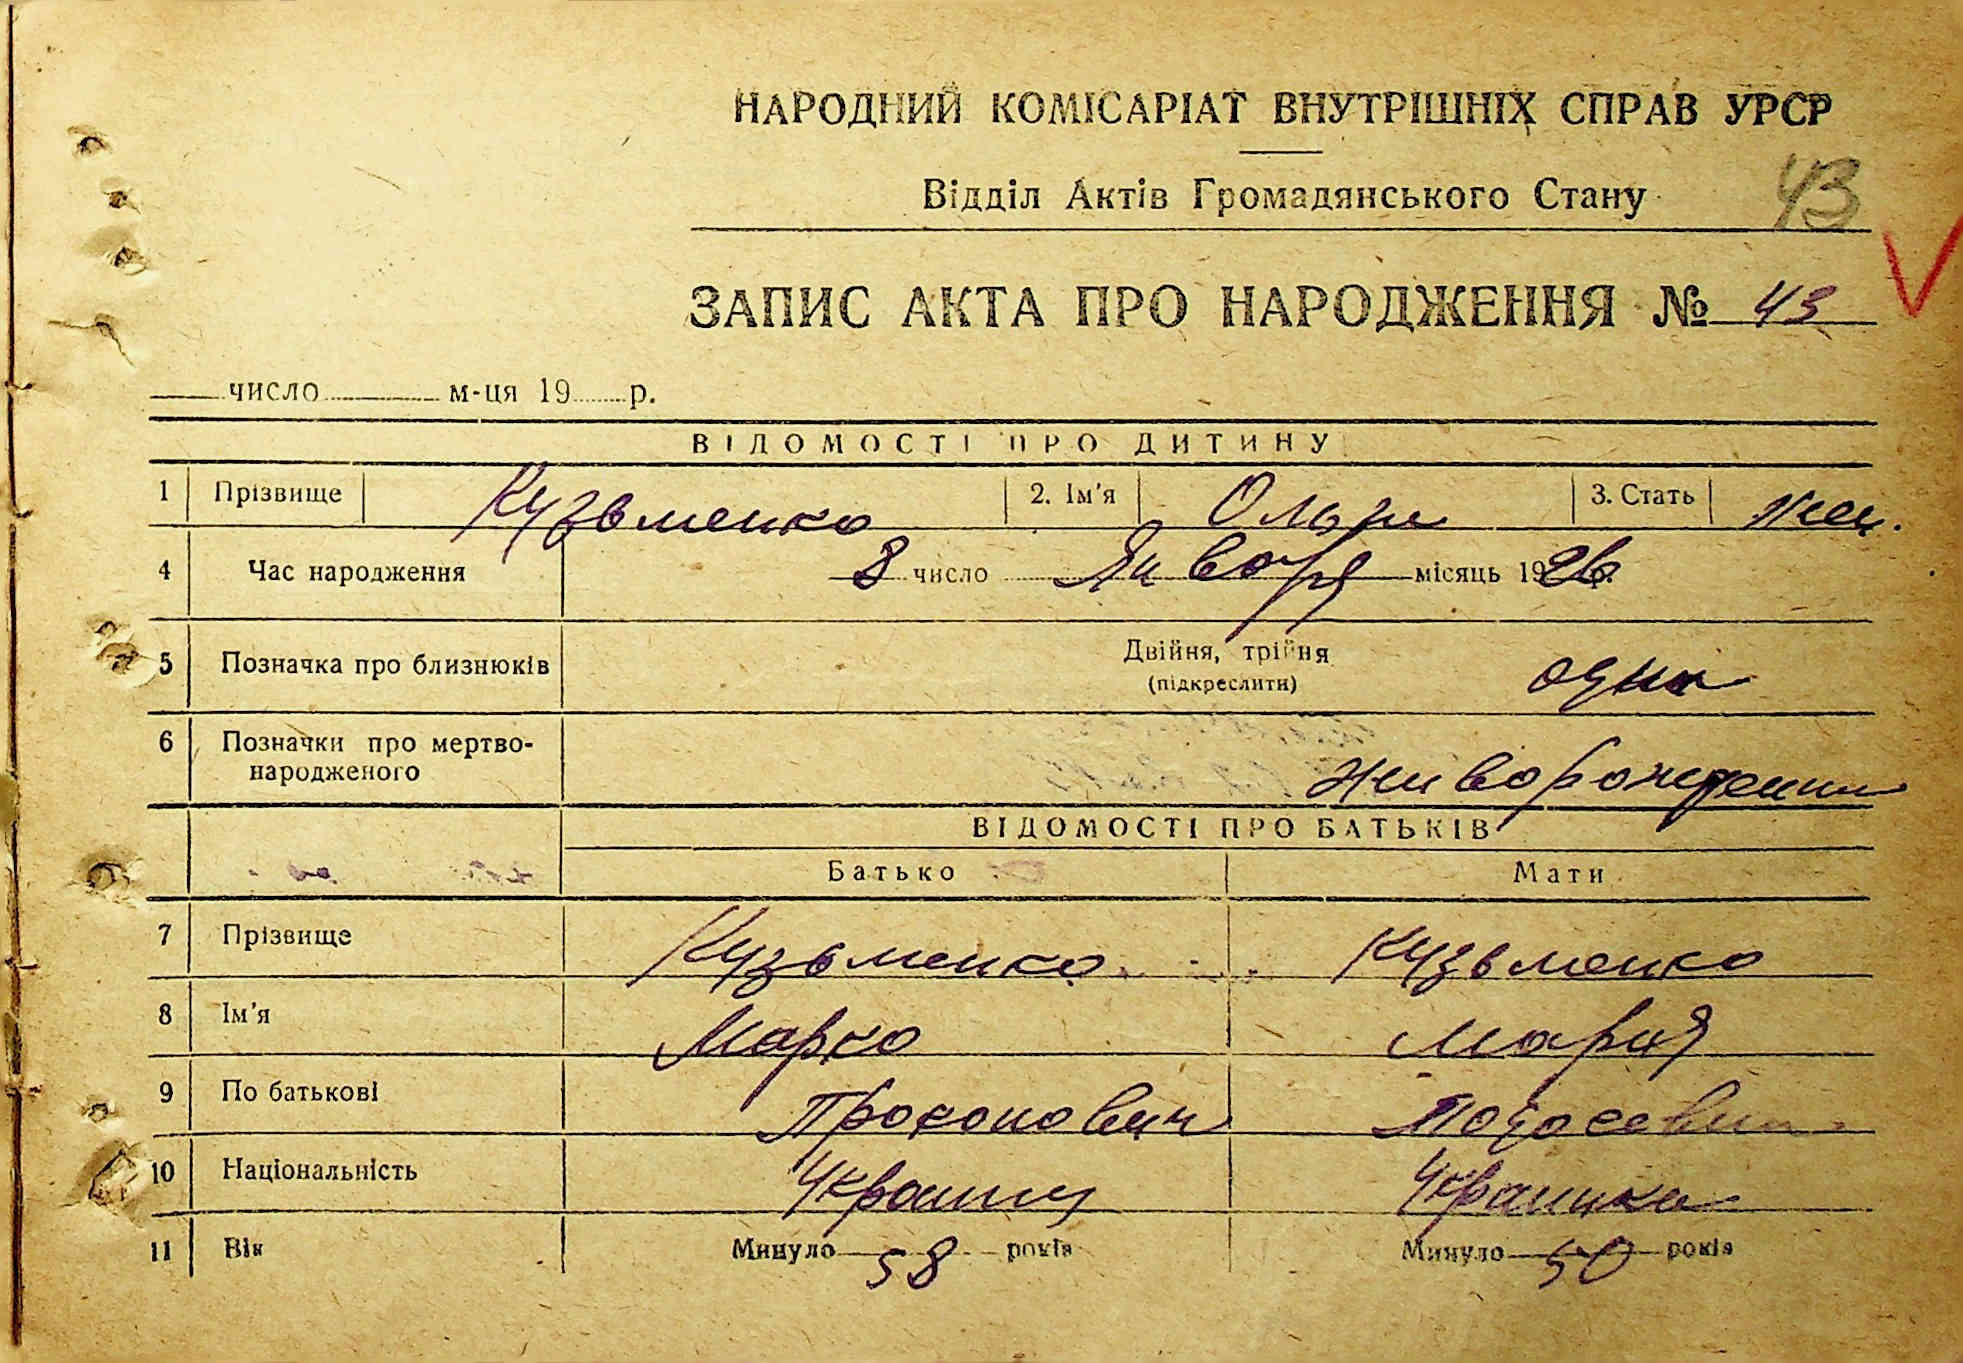 НАРОДНИЙ КОМІСАРІАТ ВНУТРІШНІХ СПРАВ УРСР
Відділ Актів Громадянського Стану
43
ЗАПИС АКТА ПРО НАРОДЖЕННЯ № 43
число м-ця 19 р.
ВІДОМОСТІ ПРО ДИТИНУ
1 Прізвище Кузьменко 2. Ім'я Ольга 3. Стать жен.
4 Час народження 8 число Января місяць 1926 р.
5 Позначка про близнюків Двійня, трійня одна
(підкреслити)
6 Позначки про мертво-
народженого живорожденна
ВІДОМОСТІ ПРО БАТЬКІВ
Батько Мати
7 Прізвище Кузьменко Кузьменко
8 Ім'я Марко Мария
9 По батькові Прокопович
10 Національність Украинец Украинка
11 Вік Минуло 58 років Минуло 50 років